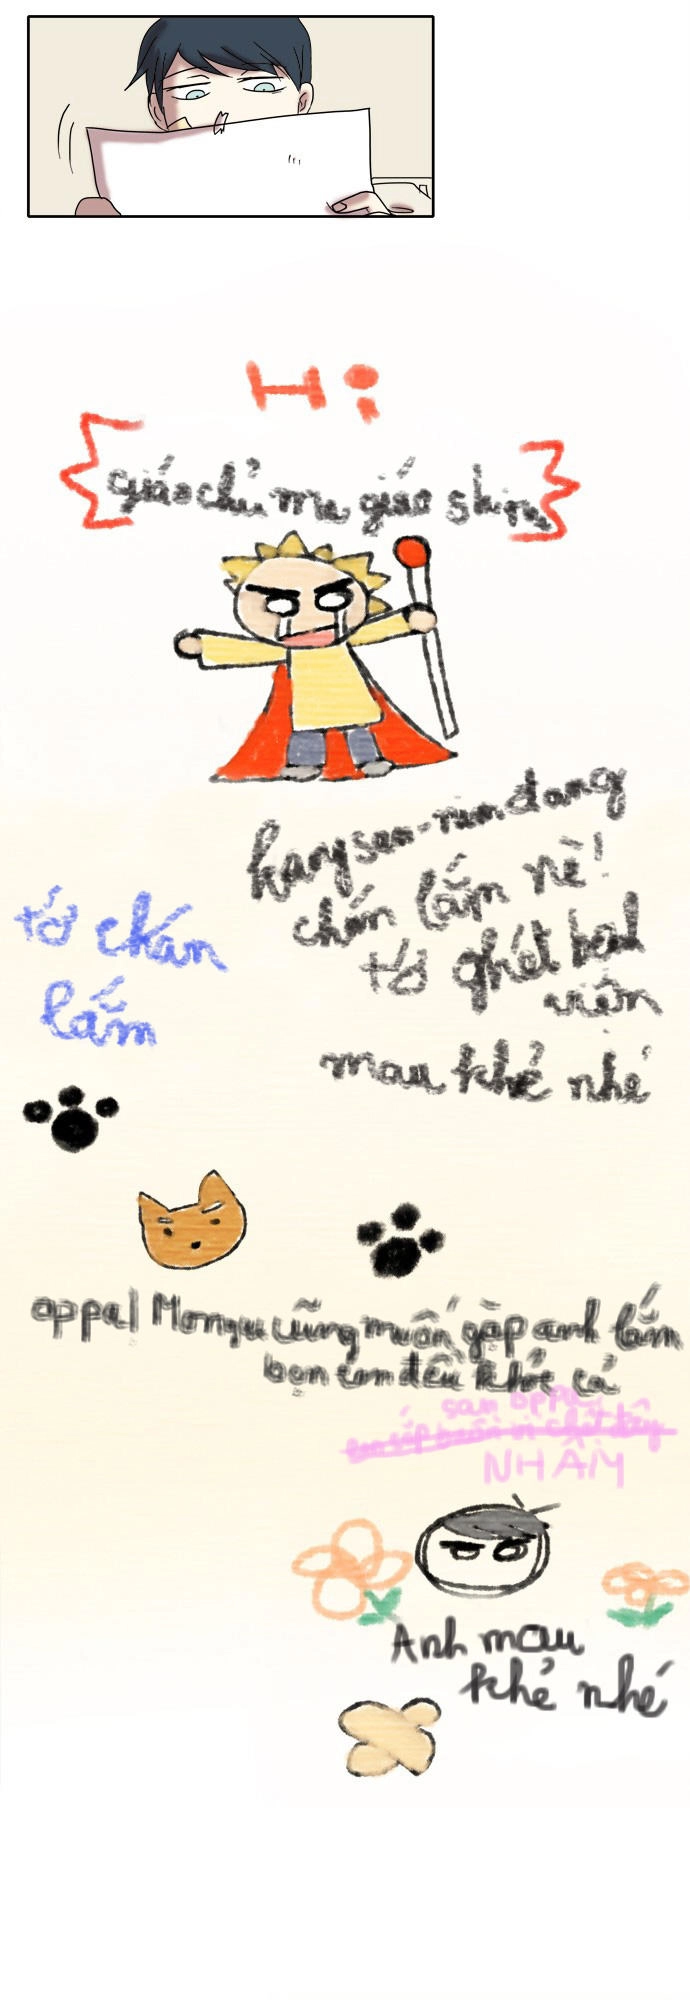 Hi
giáo chủ ma giáo shin
kangsan-nim đang
chán lắm nè!
tớ ghét bệnh
viện
tớ chán
lắm
mau khỏe nhé
oppa! Mongu cũng muốn gặp anh lắm
bọn em đều khóc cả
san oppa
NHẦM
Anh mau
khỏe nhé